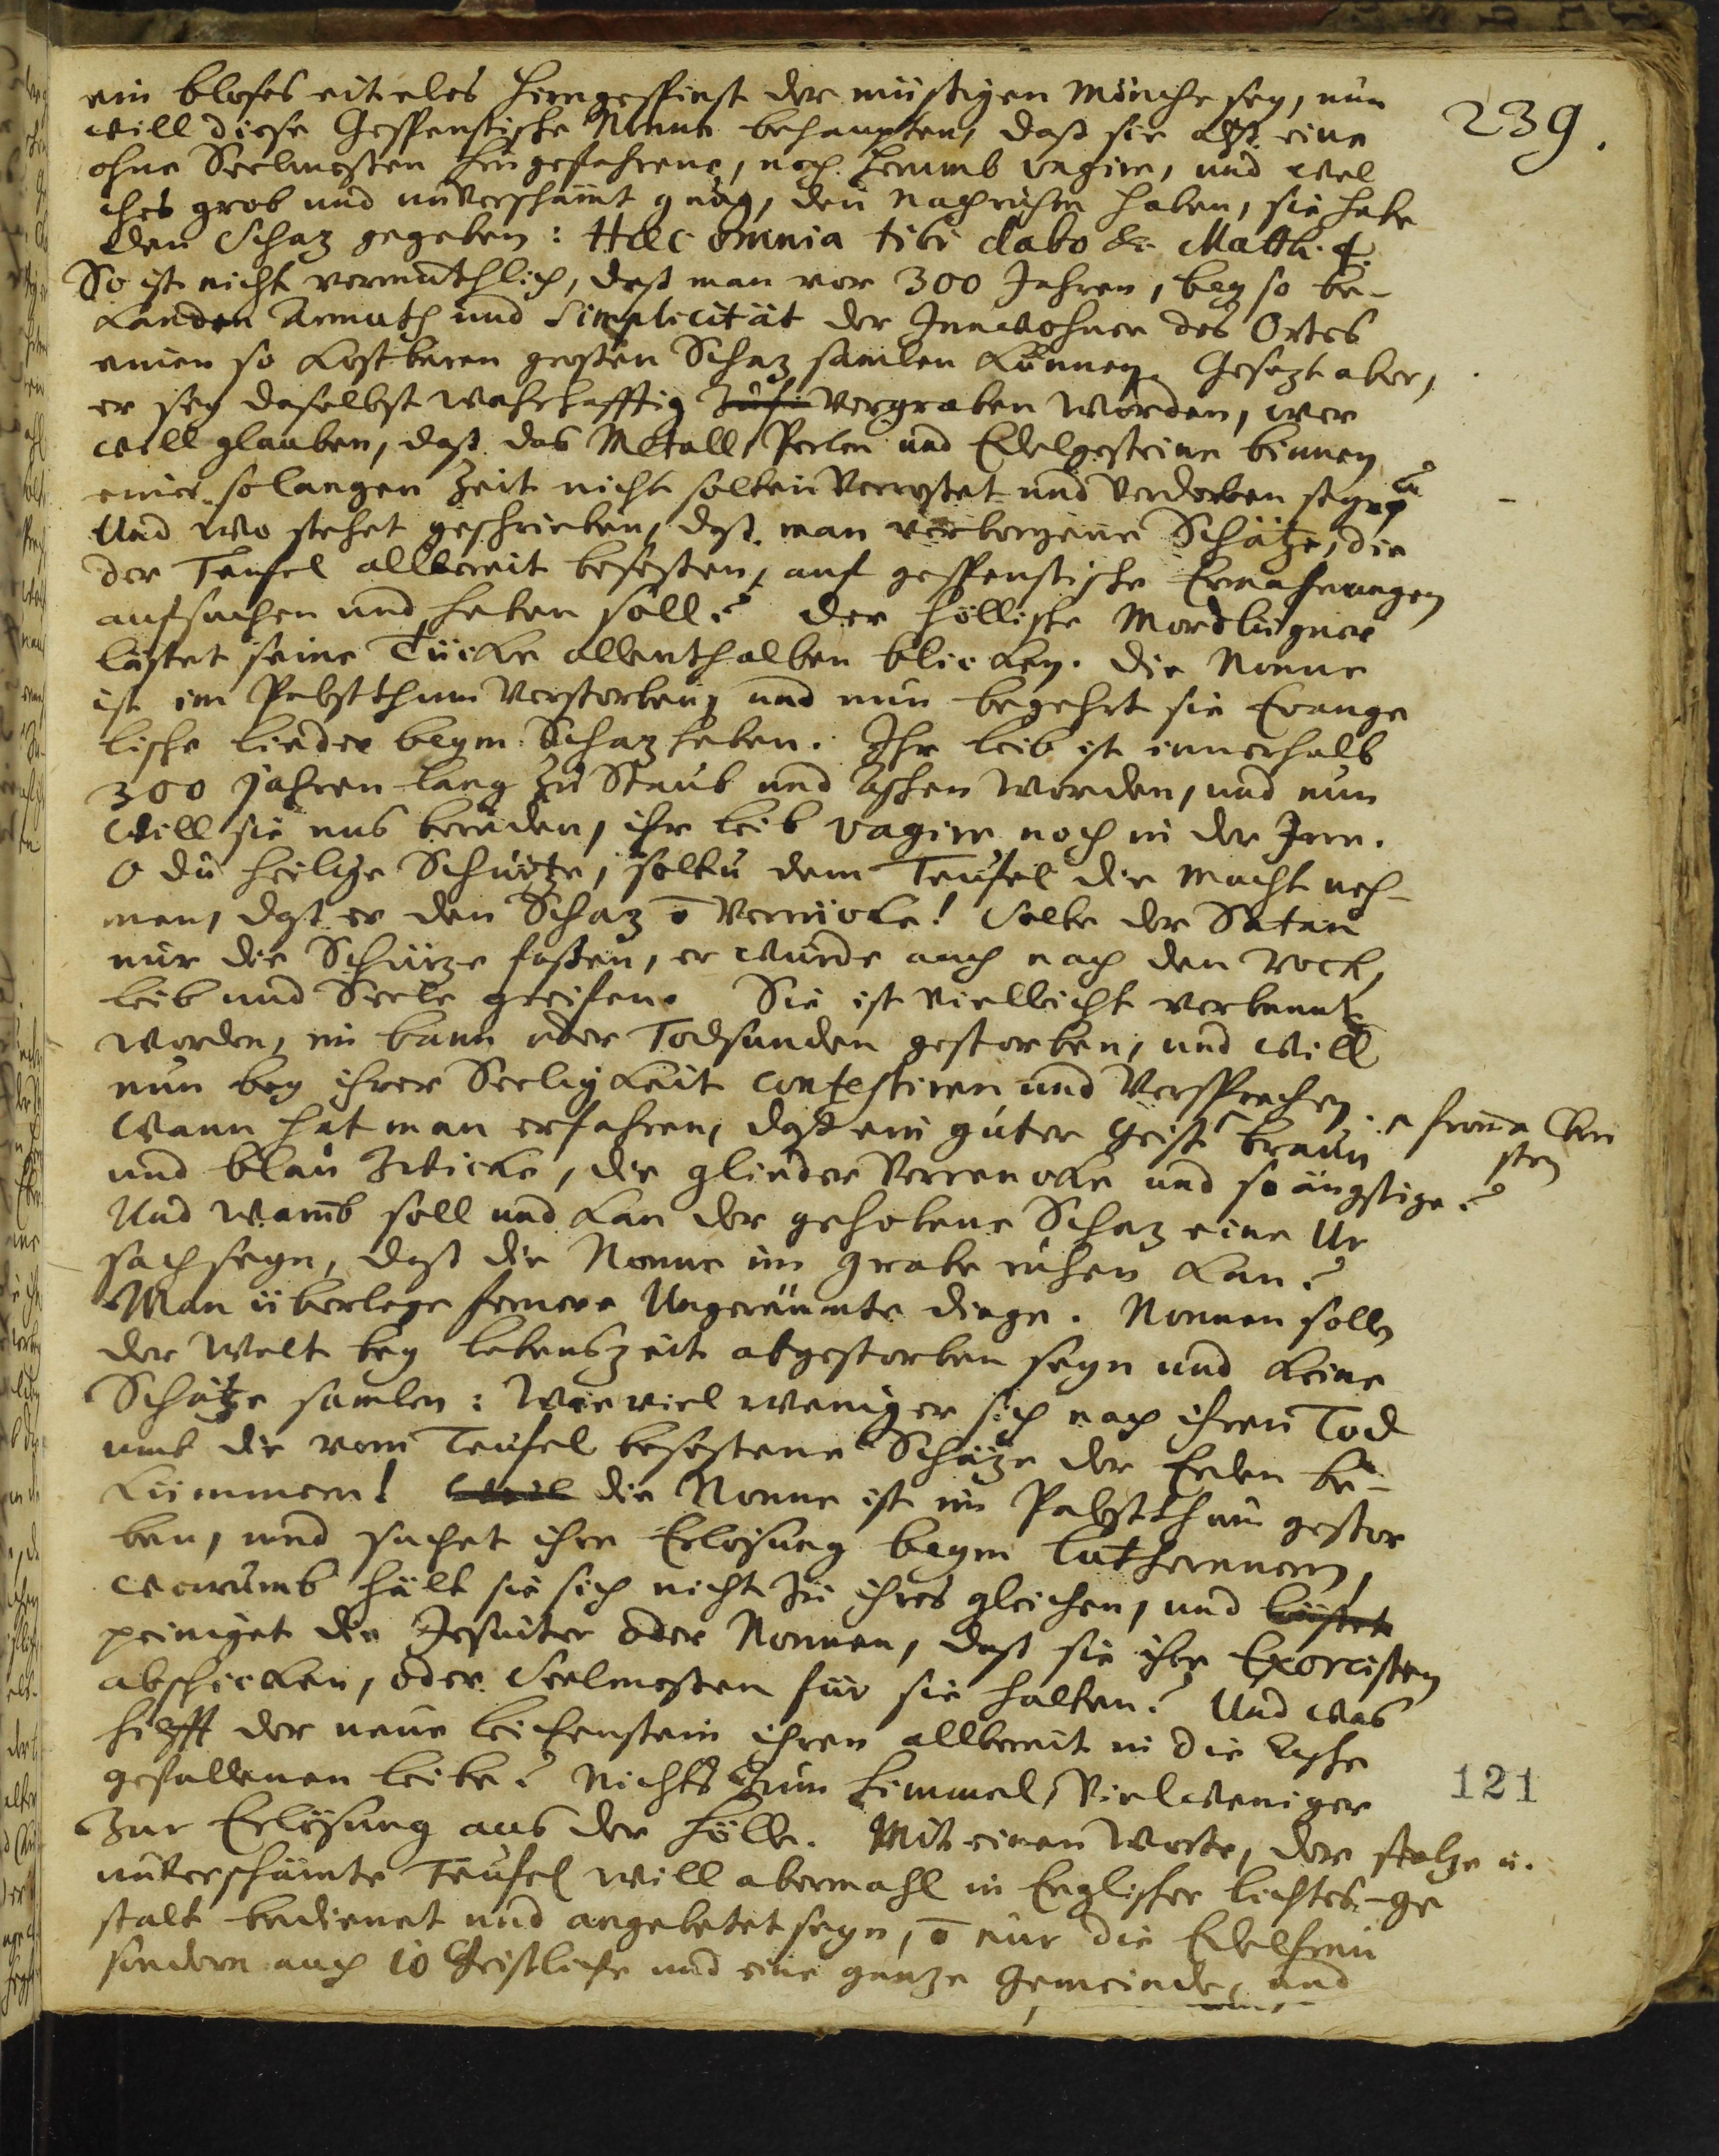 239.
ein bloses eiteles Hirngespinst der müsigen Mönche sey, nun
will diese Gespenstische Nonne behaupten, daß sie als eine
ohne Seelmessen hingefahrene, noch herumb vagire, und wel
ches grob und unverschämt gnug, den nachruhm haben, sie habe
den Schaz gegeben: Hæc omnia tibi dabo &c. Matth. 4.
So ist nicht vermuthlich, daß man vor 300 Jahren, bey so be-
kanden Armuth und Simplicität der Innwohner des Ortes
einen so kostbaren grosen Schaz samlen können. Gesezt aber,
er sey daselbst wahrhafftig vergraben worden, wer
will glauben, daß das Metall, Perlen und Edelgesteine binnen
einer so langen Zeit nicht solten verrostet und verdorben seyn?
Und wo stehet geschrieben, daß man verborgene Schätze, die
der Teufel allbereit besessen, auf gespenstische Ermahnungen
aufsuchen und heben soll? Der höllische Mordlügner
lässet seine Tücke allenthalben blicken. Die Nonne
ist im Pabstthum verstorben, und nun begehrt sie Evange
lische Lieder beym Schaz heben. Ihr leib ist innerhalb
300 Jahren lang zu Staub und Aschen worden, und nun
will sie uns bereden, ihr leib vagire noch in der Irre.
O du heilige Schürtze, soltu dem Teufel die Macht neh-
men, daß er den Schaz ō verrücke! Solte der Satan
nur die Schürze fassen, er würde auch nach den Rock,
leib und Seele greifen. Sie ist vielleicht verbannt
worden, im bann oder Todsunden gestorben, und will
nun bey ihrer Seeligkeit contestiren und versprechen.
Wann hat man erfahren, daß ein guter Geist fromme Chri
sten braun
und blau zwicke, die glieder verrencke und so ängstige?
Und warumb soll und kan der gehobene Schaz eine Ur
sach seyn, daß die Nonne im grabe ruhen kan?
Man überlege fernere Ungeräumte dinge. Nonnen solln
der Welt bey lebenszeit abgestorben seyn und keine
Schätze samlen: Wie viel weniger sich nach ihren Tod
umb die vom Teufel besessene Schätze der Erden be-
kümmern! Weil die Nonne ist im Pabstthum gestor
ben, und suchet ihre Erlösung beym Lutheranern,
warumb hält sie sich nicht zu ihres gleichen, und
peiniget die Jesuiter oder Nonnen, daß sie ihre Exorcisten
abschicken, oder Seelmessen für sie halten? Und was
hilfft der neue leichenstein ihren allbereit in die Asche
gefallenen leibe? Nichts zum Himmel, vielweniger
121
zur Erlösung aus der Hölle. Mit einem Worte, der stolze u.
unverschämte Teufel will abermahl in Englischer lichtes-ge
stalt bedienet und angebetet seyn, ō nur die Edelfrau
sondern auch 10 Geistliche und eine ganze Gemeinde, und